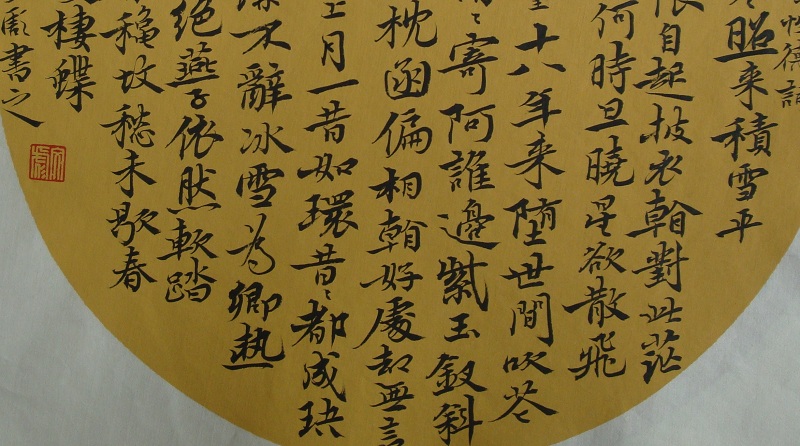 性德詞
昭来積雪平
恨自起披衣看對此茫
何時旦曉星欲散飛
十八年来墮世間吹花
〻寄阿誰邊紫玉釵斜
枕函偏相看好處却無言
上月一昔如環昔〻都成玦
不辭冰雪為卿熱
絕燕子依然軟踏
穐坟愁未歇春
棲蝶
書之